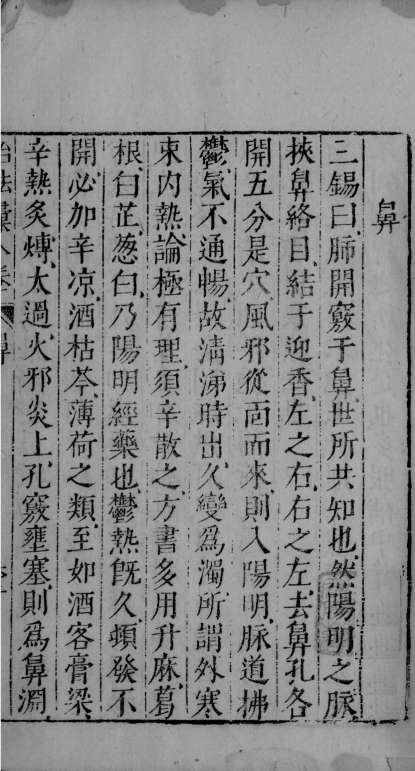 鼻
三錫曰肺開竅于鼻世所共知也然陽明之脈
挾鼻絡目結于迎香左之右右之左去鼻孔各
開五分是穴風邪從面而來則入陽明脈道拂
鬱氣不通暢故清涕時出久變爲濁所謂外寒
束内熱論極有理須辛散之方書多用升麻葛
根白芷葱白乃陽明經藥也鬱熱旣久頓發不
開必加辛凉酒枯芩薄荷之類至如酒客膏梁
辛熱炙煿太過火邪炎上孔竅壅塞則爲鼻淵
治法彙八卷 鼻